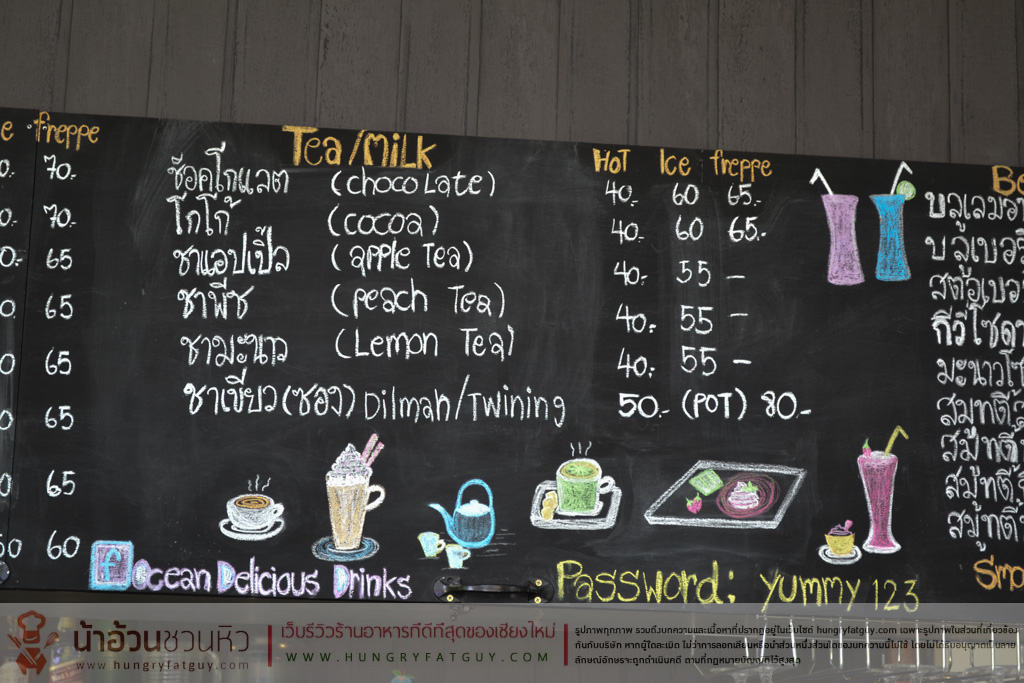 freppe
70.-
70.-
65
65
65
65
65
60
Tea/Milk
Hot Ice freppe
ช็อคโกแลต (chocolate) 40.- 60 65.-
โกโก้ (cocoa) 40.- 60 65.-
ชาแอปเปิ้ล (apple Tea) 40.- 55 -
ชาพีช (peach Tea) 40.- 55 -
ชามะนาว (Lemon Tea) 40.- 55 -
ชาเขียว(ซอง) Dilmah/Twining 50.- (POT) 80.-
f Ocean Delicious Drinks
Password: yummy 123
น้าอ้วนชวนหิว
www.hungryfatguy.com
เว็บรีวิวร้านอาหารที่ดีที่สุดของเชียงใหม่
WWW.HUNGRYFATGUY.COM
รูปภาพทุกภาพ รวมถึงบทความและเนื้อหาที่ปรากฏอยู่ในเว็บไซต์ hungryfatguy.com เฉพาะรูปภาพในส่วนที่เกี่ยวข้อง
กับทางบริษัท หากผู้ใดละเมิด ไม่ว่าการลอกเลียนหรือนำส่วนหนึ่งส่วนใดของบทความนี้ไปใช้ โดยไม่ได้รับอนุญาตเป็นลาย
ลักษณ์อักษรจะถูกดำเนินคดี ตามที่กฎหมายบัญญัติไว้สูงสุด